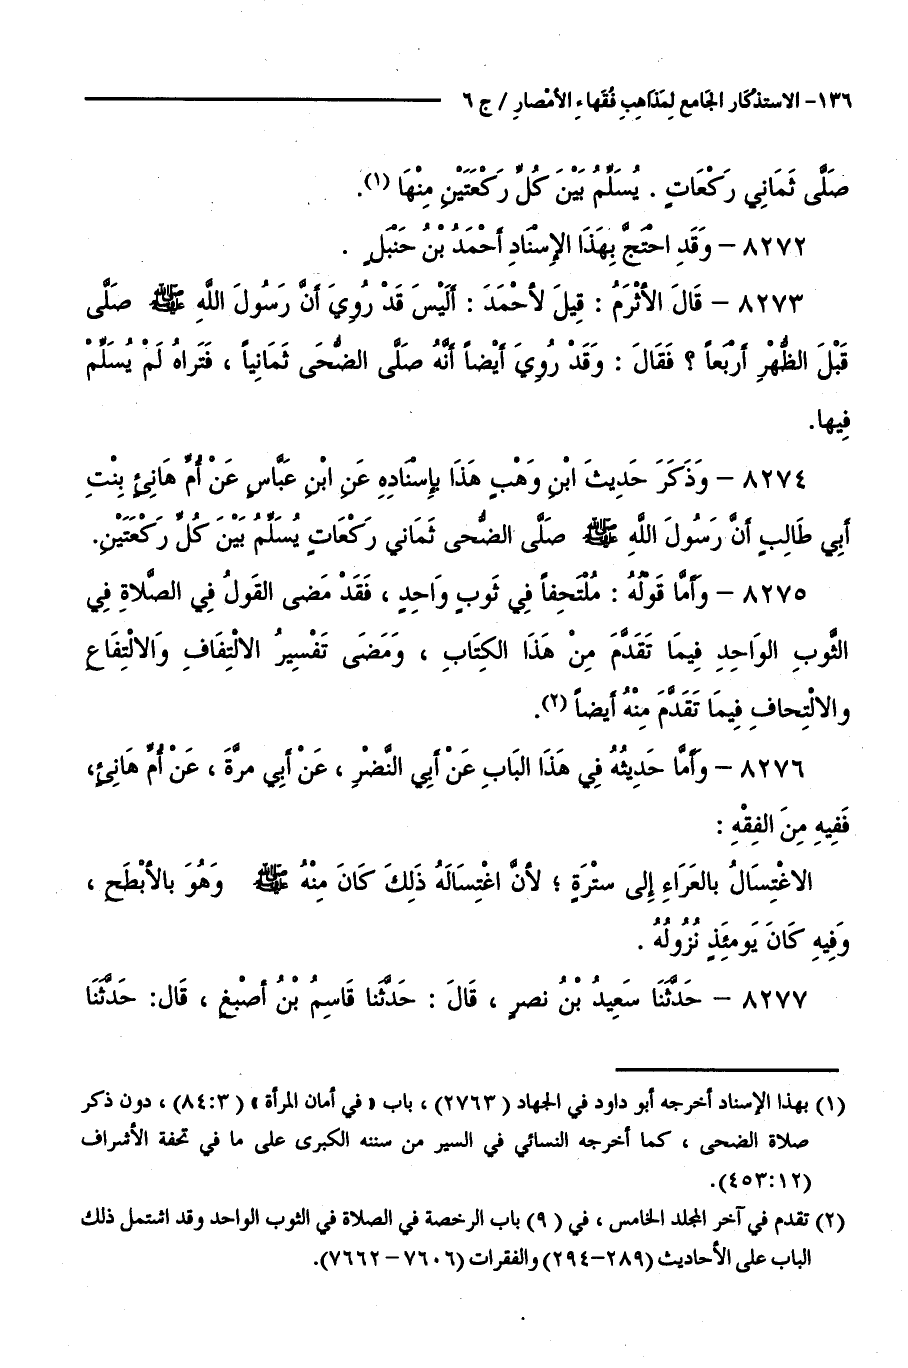 ١٣٦- الاستذْكَار الجَامع لِمَذَاهِبِ فُقَهاءِ الأمْصارِ / ج ٦
صَلَّى ثَمَانِي رَكْعَاتٍ . يُسَلِّمُ بَيْنَ كُلِّ رَكْعَتَيْنِ مِنْهَا (١).
٨٢٧٢ – وَقَدِ احْتَجَّ بِهَذَا الإِسْنَادِ أَحْمَدُ بْنُ حَنْبَلٍ .
٨٢٧٣ – قَالَ الأَثْرَمُ : قِيلَ لأحْمَدَ : أَلَيْسَ قَدْ رُوِيَ أَنَّ رَسُولَ اللَّهِ ﷺ صَلَّى
قَبْلَ الظُّهْرِ أَرْبَعاً ؟ فَقَالَ : وَقَدْ رُوِيَ أَيْضاً أَنَّهُ صَلَّى الضُّحَى ثَمَانِياً ، فَتَراهُ لَمْ يُسَلِّمْ
فِيها.
٨٢٧٤ – وَذَكَرَ حَدِيثَ ابْنِ وَهْبٍ هَذَا بِإِسْنَادِهِ عَنِ ابْنِ عَبَّاسٍ عَنْ أُمِّ هَانِئٍ بِنْتِ
أَبِي طَالِبٍ أَنَّ رَسُولَ اللَّهِ ﷺ صَلَّى الضُّحى ثَمَاني رَكْعَاتٍ يُسَلِّمُ بَيْنَ كُلِّ رَكْعَتَيْنِ.
٨٢٧٥ – وَأَمَّا قَوْلُهُ : مُلْتَحِفاً فِي ثَوبٍ وَاحِدٍ ، فَقَدْ مَضى القَولُ فِي الصَّلاةِ فِي
الثَّوبِ الوَاحِدِ فِيمَا تَقَدَّمَ مِنْ هَذَا الكِتَابِ ، وَمَضَى تَفْسِيرُ الالْتِفَافِ وَالالْتِفَاعِ
والالْتِحافِ فِيمَا تَقَدَّمَ مِنْهُ أَيضاً (٢).
٨٢٧٦ – وَأَمَّا حَدِيثُهُ فِي هَذَا البَابِ عَنْ أَبِي النَّضْرِ ، عَنْ أَبِي مرَّةَ ، عَنْ أُمِّ هَانِئٍ،
فَفِيهِ مِنَ الفِقْهِ :
الاغْتِسَالُ بالعَرَاءِ إِلى سترَةٍ ؛ لأنَّ اغْتِسَالَهُ ذَلِكَ كَانَ مِنْهُ ﷺ وَهُوَ بالأبْطَحِ ،
وَفِيهِ كَانَ يَومئَذٍ نُزُولُهُ .
٨٢٧٧ – حَدَّثَنَا سَعِيدُ بْنُ نصرٍ ، قَالَ : حَدَّثَنا قَاسِمُ بْنُ أصْبغَ ، قَال: حَدَّثَنَا
(١) بهذا الإسناد أخرجه أبو داود في الجهاد (٢٧٦٣) ، باب « في أمان المرأة » (٣:٨٤) ، دون ذكر
صلاة الضحى ، كما أخرجه النسائي في السير من سننه الكبرى على ما في تحفة الأشراف
(١٢:٤٥٣).
(٢) تقدم في آخر المجلد الخامس ، في (٩) باب الرخصة في الصلاة في الثوب الواحد وقد اشتمل ذلك
الباب على الأحاديث (٢٨٩–٢٩٤) والفقرات (٧٦٠٦–٧٦٦٢).